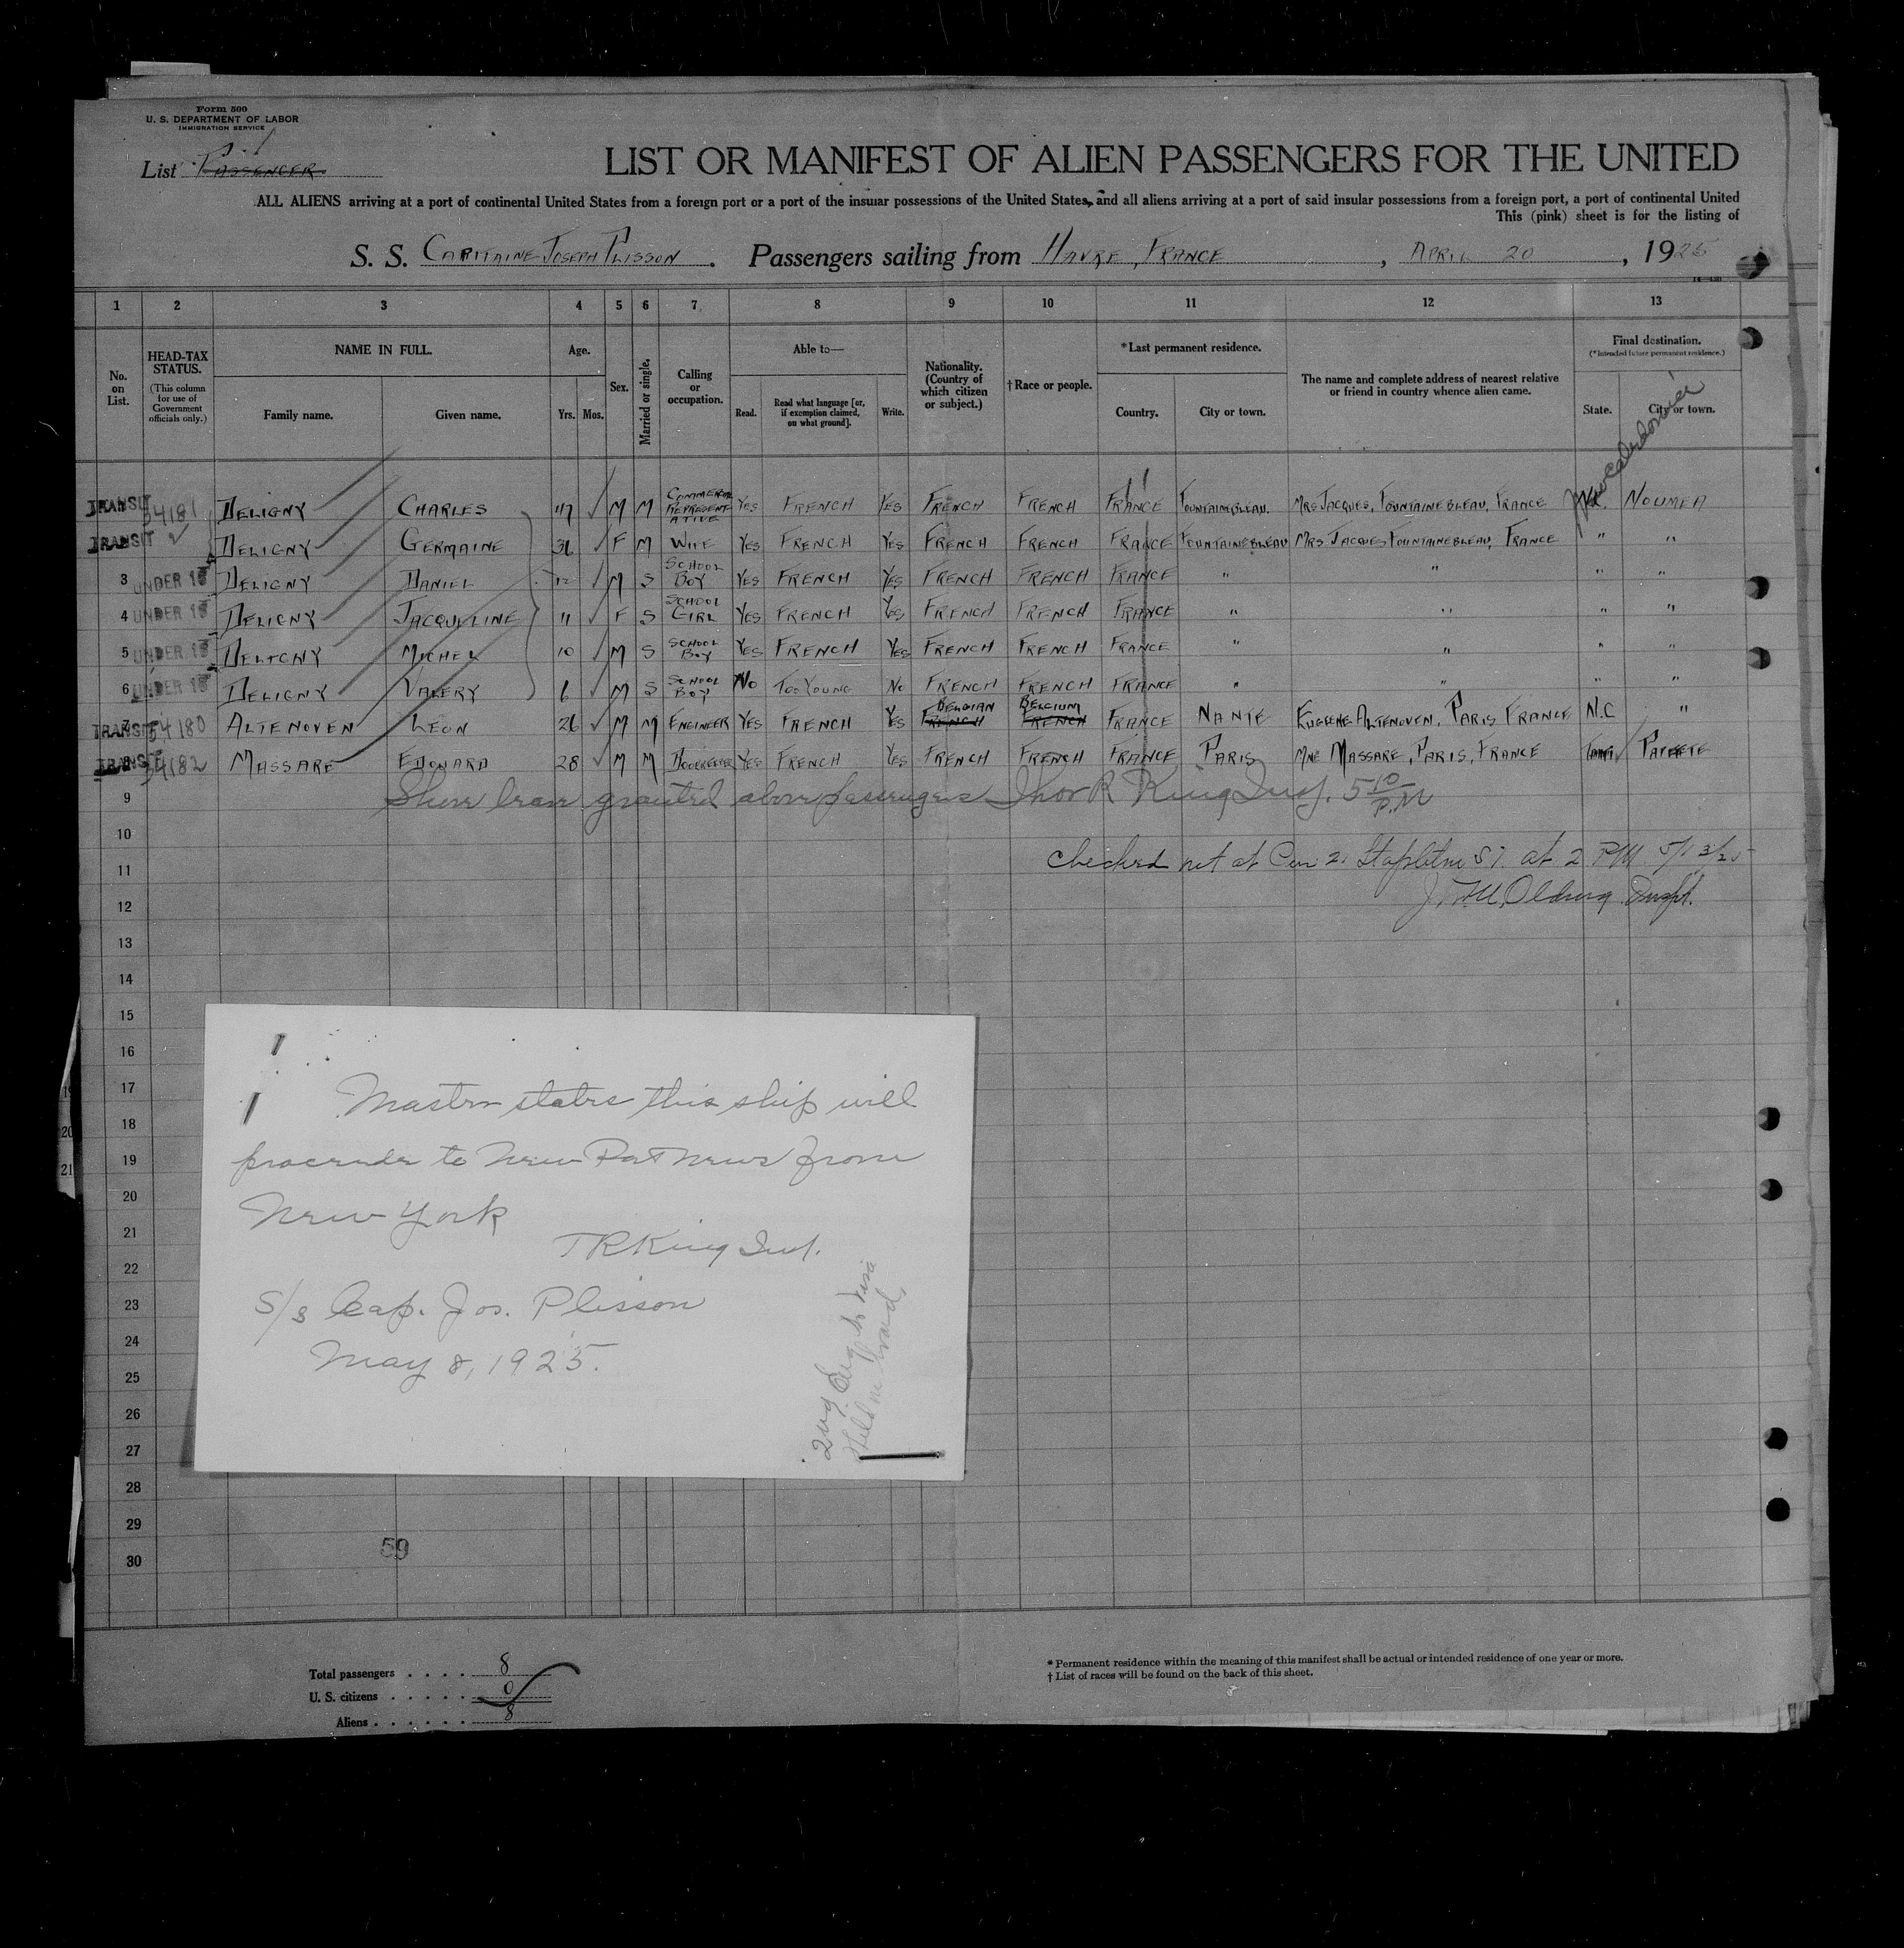 Form 500
U. S. DEPARTMENT OF LABOR
IMMIGRATION SERVICE
List PASSENGER 1
LIST OR MANIFEST OF ALIEN PASSENGERS FOR THE UNITED
ALL ALIENS arriving at a port of continental United States from a foreign port or a port of the insular possessions of the United States, and all aliens arriving at a port of said insular possessions from a foreign port, a port of continental United
This (pink) sheet is for the listing of
S. S. CAPITAINE JOSEPH PLISSON. Passengers sailing from HAVRE, FRANCE, APRIL 20, 1925
1 2 3 4 5 6 7 8 9 10 11 12 13
No. on List.
HEAD-TAX STATUS.
(This column for use of Government officials only.)
NAME IN FULL.
Family name. Given name.
Age.
Yrs. Mos.
Sex.
Married or single.
Calling or occupation.
Able to—
Read. Read what language [or, if exemption claimed, on what ground]. Write.
Nationality. (Country of which citizen or subject.)
† Race or people.
* Last permanent residence.
Country. City or town.
The name and complete address of nearest relative or friend in country whence alien came.
Final destination.
(* Intended future permanent residence.)
State. City or town.
New Caledonia
TRANSIT 54181 DELIGNY CHARLES 47 M M COMMERCIAL REPRESENTATIVE YES FRENCH YES FRENCH FRENCH FRANCE FOUNTAINEBLEAU. MRS JACQUES, FOUNTAINEBLEAU, FRANCE NOUMEA
TRANSIT DELIGNY GERMAINE 36 F M WIFE YES FRENCH YES FRENCH FRENCH FRANCE FOUNTAINEBLEAU MRS JACQUES FOUNTAINEBLEAU, FRANCE " "
3 UNDER 16 DELIGNY DANIEL 12 M S SCHOOL BOY YES FRENCH YES FRENCH FRENCH FRANCE " " " "
4 UNDER 16 DELIGNY JACQUELINE 11 F S SCHOOL GIRL YES FRENCH YES FRENCH FRENCH FRANCE " " " "
5 UNDER 16 DELIGNY MICHEL 10 M S SCHOOL BOY YES FRENCH YES FRENCH FRENCH FRANCE " " " "
6 UNDER 16 DELIGNY VALERY 6 M S SCHOOL BOY NO TOO YOUNG NO FRENCH FRENCH FRANCE " " " "
TRANSIT 54180 ALTENOVEN LEON 26 M M ENGINEER YES FRENCH YES FRENCH BELGIAN FRENCH BELGIUM FRANCE NANTE EUGENE ALTENOVEN, PARIS, FRANCE N.C "
TRANSIT 54182 MASSARE EDOWARD 28 M M BOOKKEEPER YES FRENCH YES FRENCH FRENCH FRANCE PARIS MME MASSARE, PARIS, FRANCE PAPEETE
9 Shore leave granted above passengers Thor R King Insp. 5 10 P.M
10
11 checked out at Pier 2. Stapleton SI. at 2 PM 5/13/25
12
13
14
15
16
17
18
19
20
21
22
23
24
25
26
27
28
29
30
Master states this ship will
proceeds to New Port News from
New York
TRKing Insp.
S/S Cap. Jos. Plisson
May 8, 1925.
59
Total passengers . . . . 8
U. S. citizens . . . . . 0
Aliens . . . . . . 8
* Permanent residence within the meaning of this manifest shall be actual or intended residence of one year or more.
† List of races will be found on the back of this sheet.